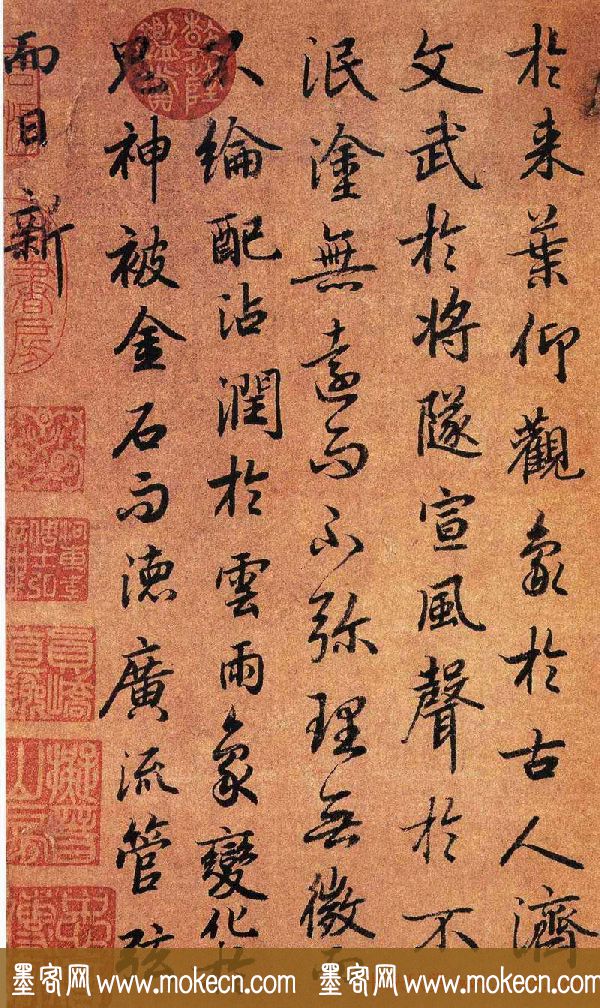 於来葉仰觀象於古人濟
文武於将隧宣風聲於不
泯塗無遠而不弥理無微
不綸配沾潤於雲雨象變化
鬼神被金石而徳廣流管弦
而日新
墨客网 www.mokecn.com 墨客网 www.mokecn.com